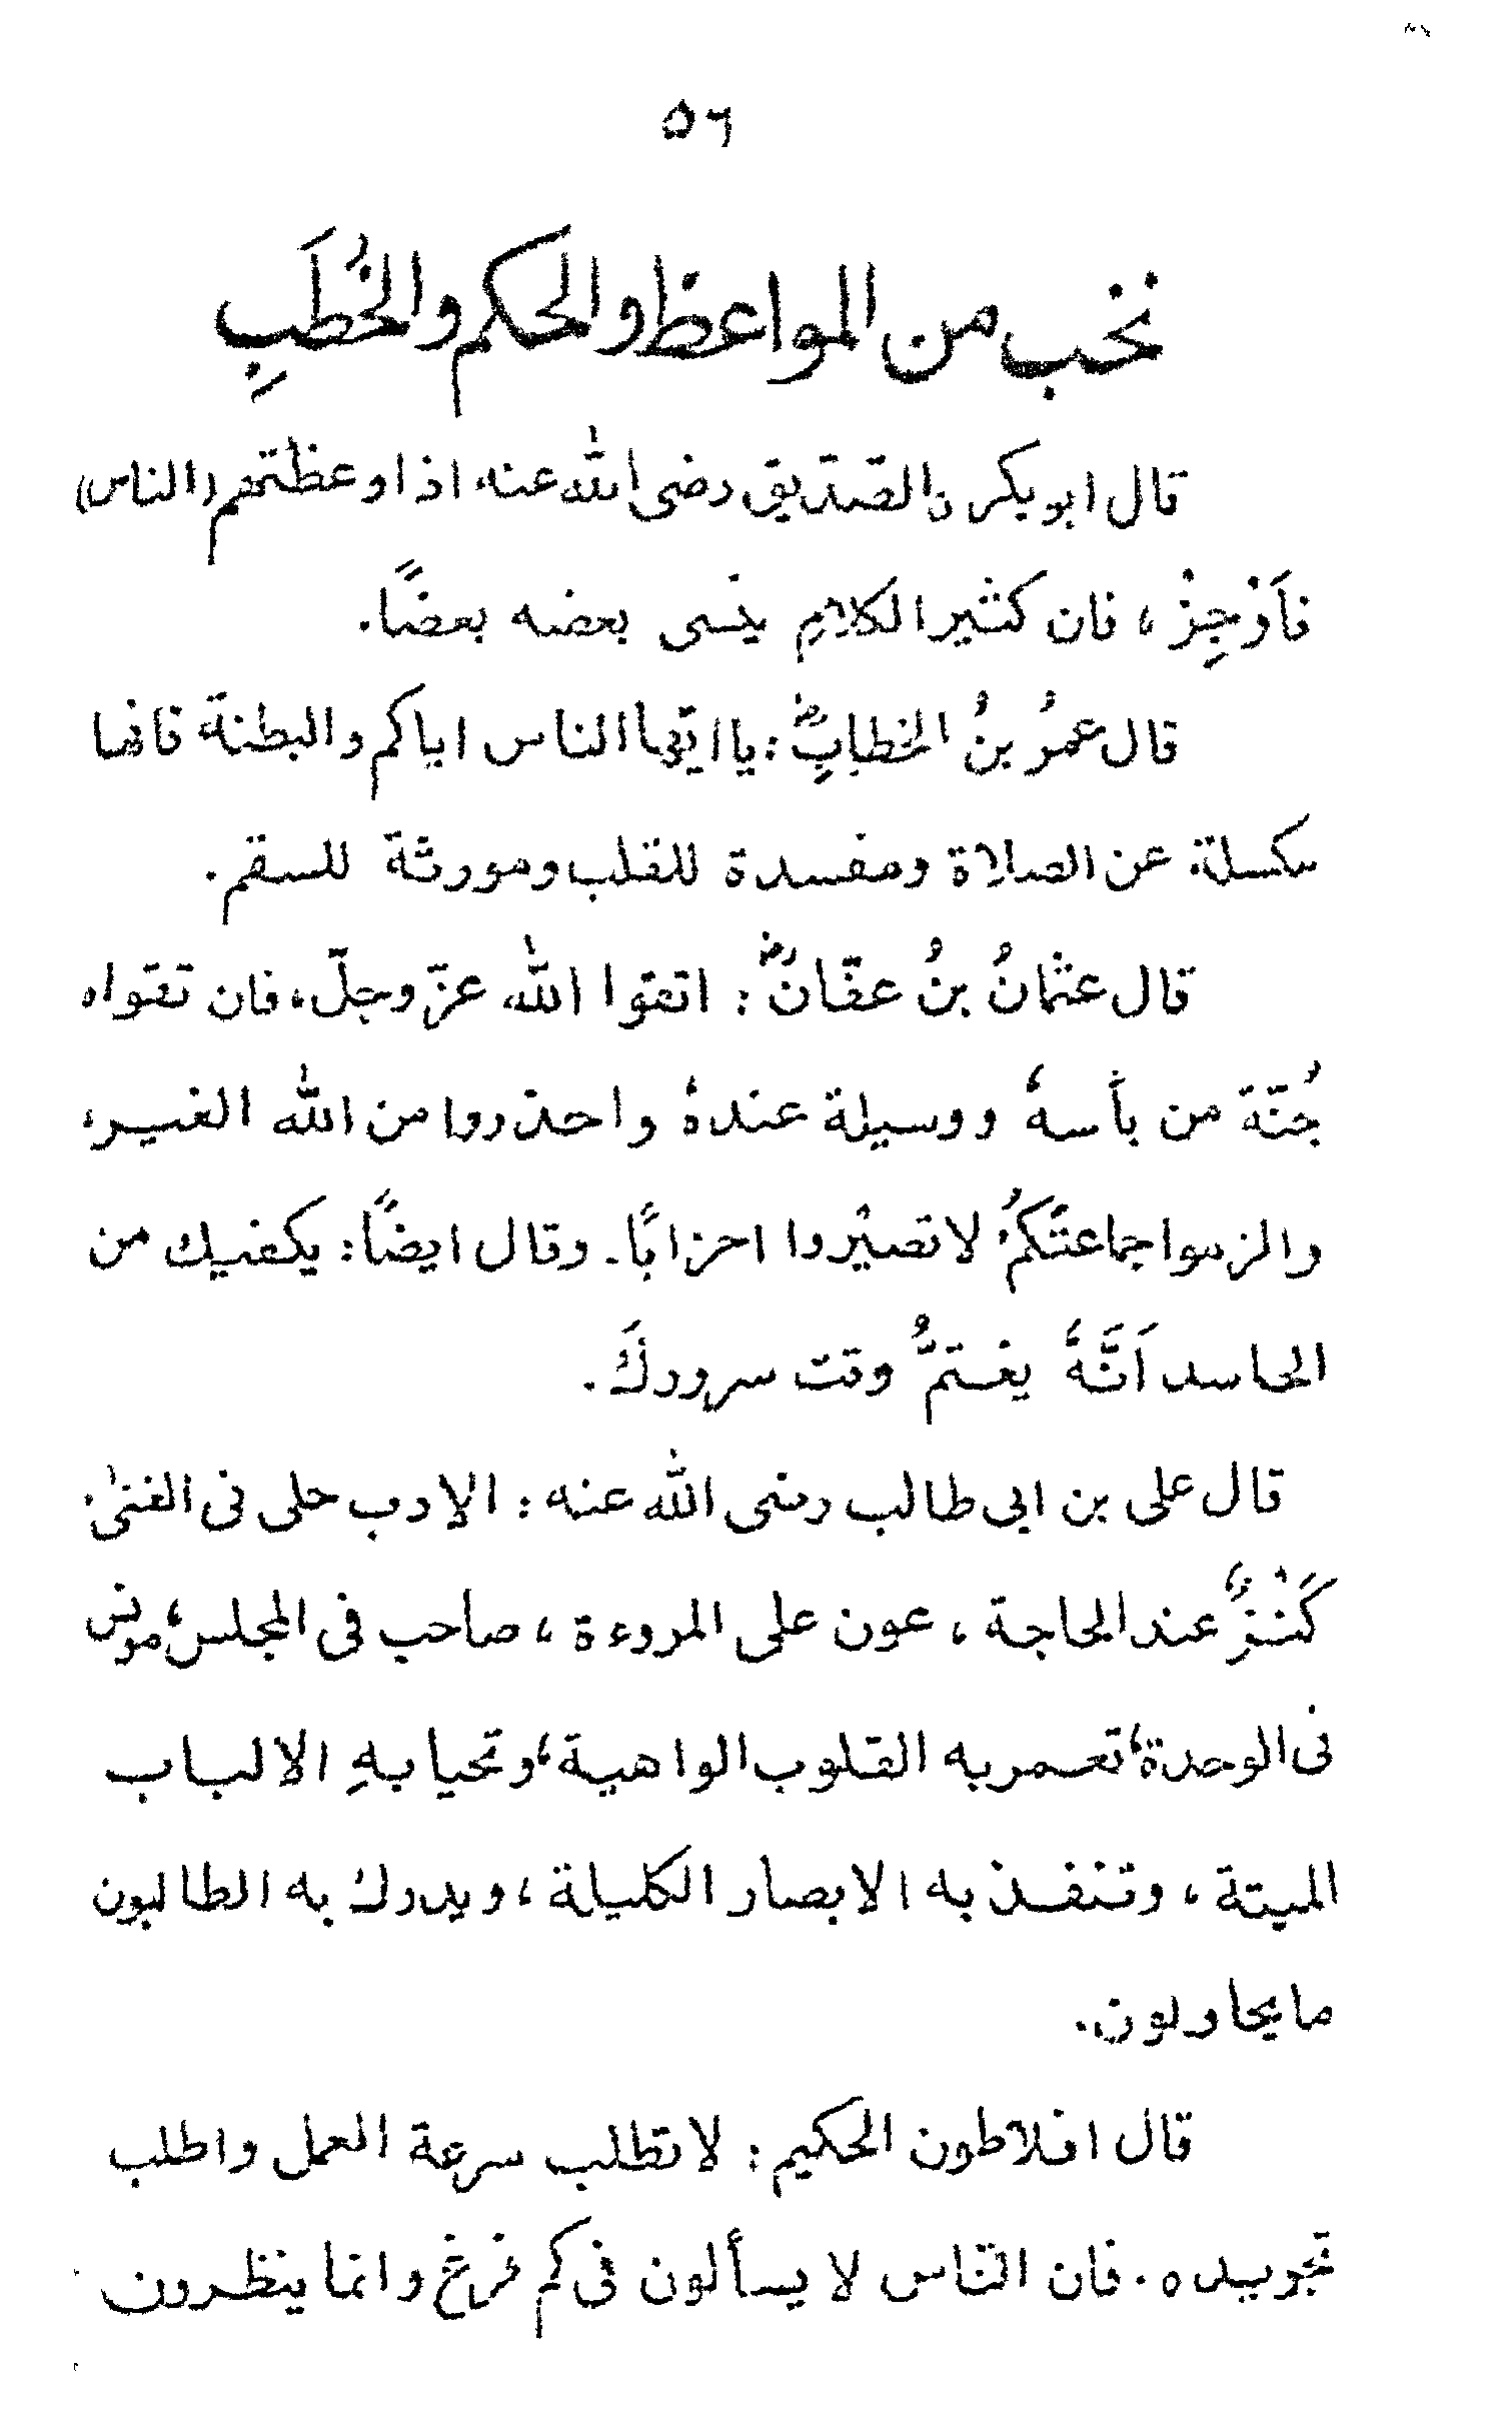 ٥٦
نخب من المواعظ والحكم والخُطَبِ
قال ابوبكر ن الصّدّيق رضى الله عنه اذا وعظتهم (الناس)
فَأَوْجِزْ ، فان كثير الكلامِ ينسى بعضه بعضًا.
قال عمرُ بنُ الخطابِؓ : يا ايّها الناس اياكم والبطنة فانها
مكسلة عن الصلاة ومفسدة للقلب ومورثة للسقم.
قال عثمانُ بنُ عفّانَؓ : اتقوا الله عزّ وجلّ، فان تقواه
جُنّة من بأسهٗ ووسيلة عندهٗ واحذروا من الله الغير،
والزموا جماعتَكمُ لا تصيْروا احزابًا. وقال ايضًا: يكفيك من
الحاسد اَنَّهٗ يغتمُّ وقت سروركَ.
قال على بن ابى طالب رضى الله عنه : الادب حلى فى الغنىٰ.
كَنْزٌ عند الحاجة ، عون على المروءة ، صاحب فى المجلس، مونس
فى الوحدة، تعمر به القلوب الواهية، وتحيا بهِ الالباب
الميتة ، وتنفذ به الابصار الكليلة ، ويدرك به الطالبون
ما يحاولون.
قال افلاطون الحكيم : لا تطلب سرعة العمل واطلب
تجويده . فان النّاس لا يسألون فى كم فرغ وانما ينظرون